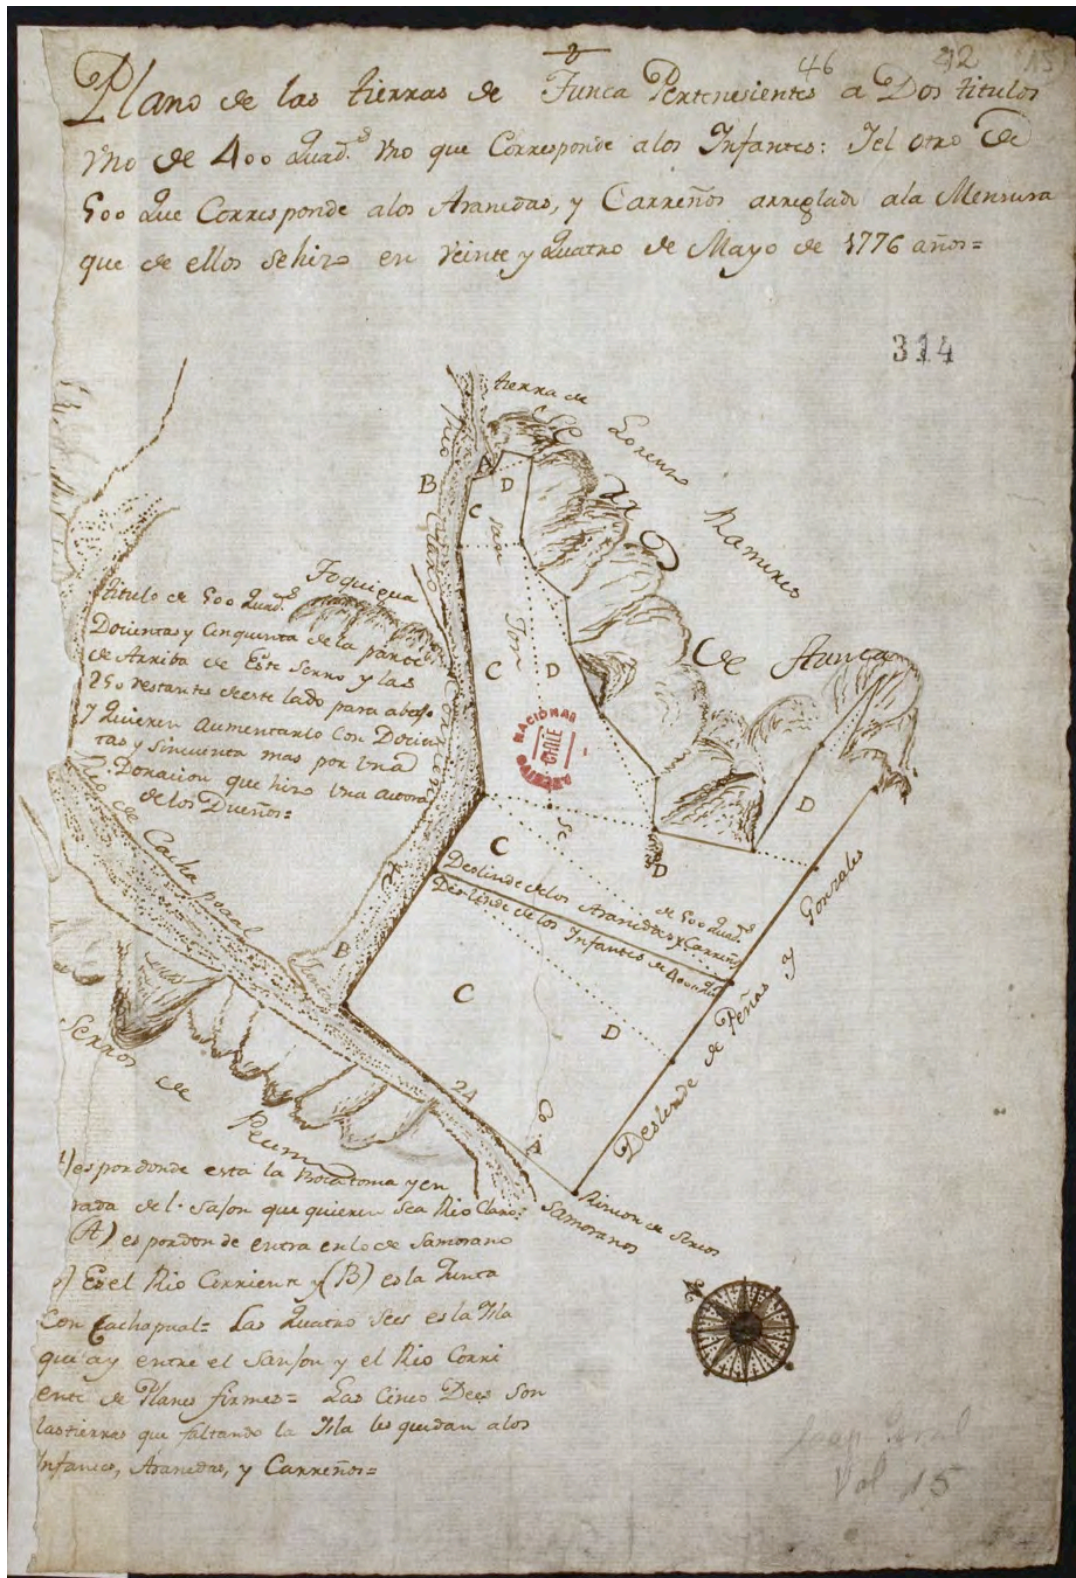 46 212 15
Plano de las tierras de Tunca Pertenesientes a Dos titulos
Vno de 400 Quad.s Vno que Corresponde alos Infantes: Iel otro de
500 Que Corresponde alos Aranedas, y Carreños arreglado ala Mensura
que de ellos sehizo en Veinte y Quatro de Mayo de 1776 años=
314
tierra de
Lorenzo
Ramires
Rio
Claro
Corriente
A
B
D
C
San
Jon
Toquigua
titulo de 500 Quad.s
Docientas y Cinquenta de la parte
de Arriba de Este Serro y las
250 restantes deeste lado para abajo
y Quieren aumentarlo Con Docien
tas y sincuenta mas por Vna
Donacion que hizo Vna
de los Dueños=
de Tunca
C
D
ARCHIVO NACIONAL
CHILE
D
C
D
Deslinde delos Aranedas y Carreños
de 500 Quad.s
Deslinde de los Infantes de 400
Rio de Cachapoal
B
Junta
C
D
Deslinde de Peñas y Gonzales
Serros de Peumo
24
A
Rincon de
Samoranos
es pordonde esta la Bocatoma yen
trada del Sajon que quieren sea Rio Claro:
(A) es pordon de entra enlo de Samorano
Es el Rio Corriente y (B) es la Junta
Con Cachapual= Las Quatro Sees es la Isla
que ay entre el Sanjon y el Rio Corri
ente de Planes firmes= Las Cinco Dees son
las tierras que faltando la Isla les quedan alos
Infantes, Aranedas, y Carreños=
Vol 15